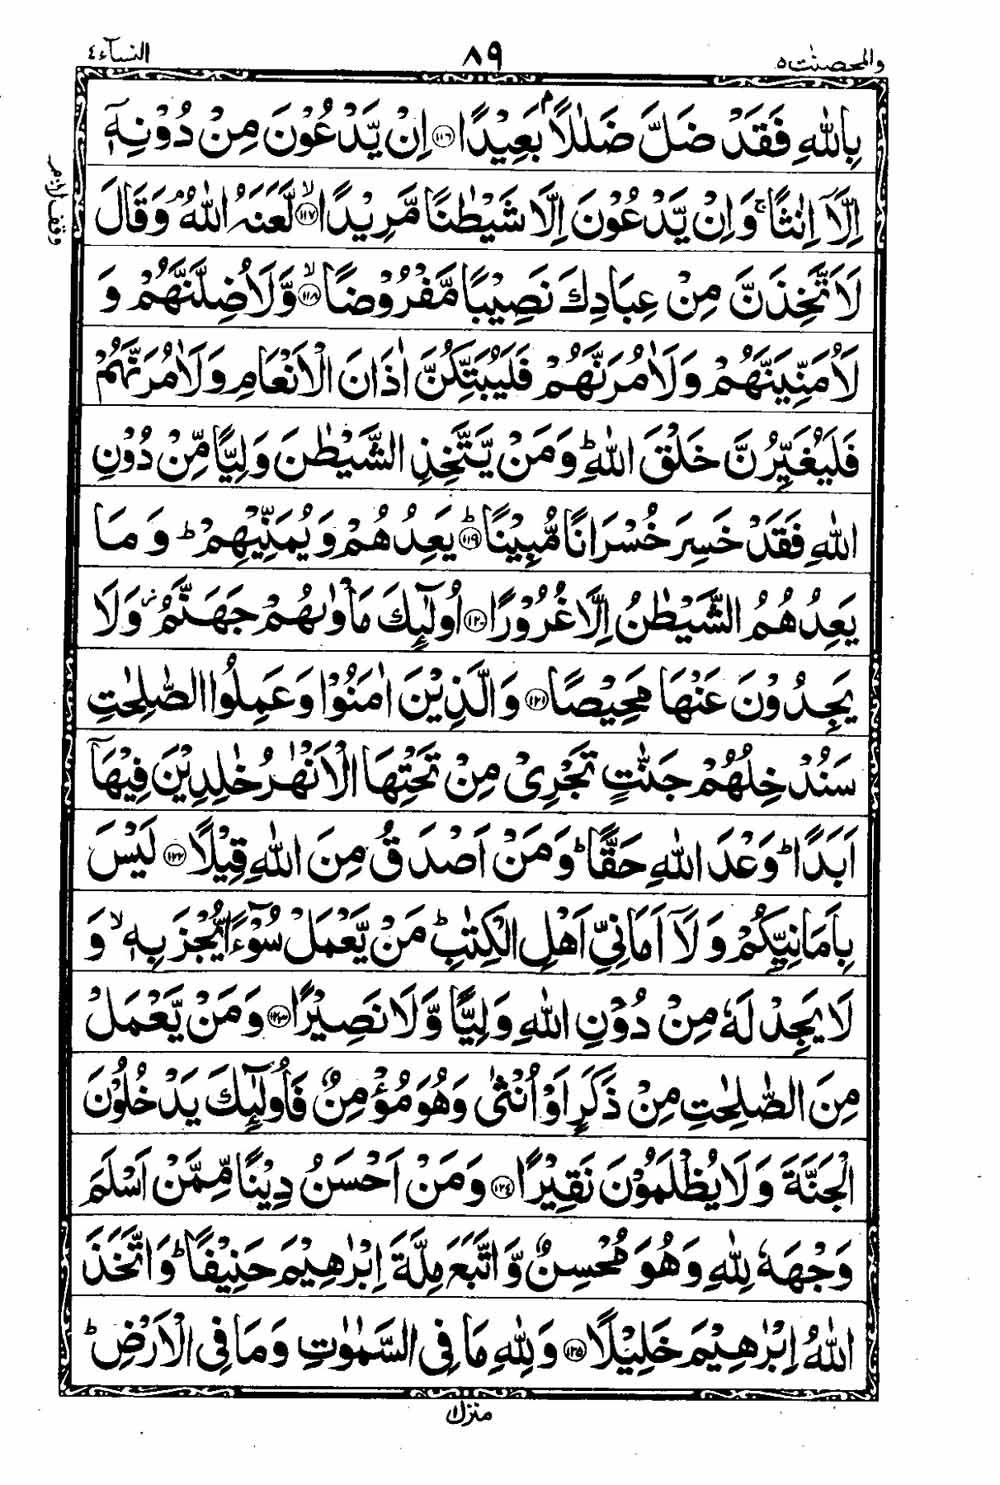 والمحصنت ٥ ٨٩ النسآء ٤
بِاللّٰهِ فَقَدْ ضَلَّ ضَلٰلًاۢ بَعِيْدًا ۝١١٦ اِنْ يَّدْعُوْنَ مِنْ دُوْنِهٖٓ
اِلَّآ اِنٰثًا ۚ وَاِنْ يَّدْعُوْنَ اِلَّا شَيْطٰنًا مَّرِيْدًا ۝١١٧ۙ لَّعَنَهُ اللّٰهُ ۘ وَقَالَ
لَاَتَّخِذَنَّ مِنْ عِبَادِكَ نَصِيْبًا مَّفْرُوْضًا ۝١١٨ۙ وَّلَاُضِلَّنَّهُمْ وَ
لَاُمَنِّيَنَّهُمْ وَلَاٰمُرَنَّهُمْ فَلَيُبَتِّكُنَّ اٰذَانَ الْاَنْعَامِ وَلَاٰمُرَنَّهُمْ
فَلَيُغَيِّرُنَّ خَلْقَ اللّٰهِ ؕ وَمَنْ يَّتَّخِذِ الشَّيْطٰنَ وَلِيًّا مِّنْ دُوْنِ
اللّٰهِ فَقَدْ خَسِرَ خُسْرَانًا مُّبِيْنًا ۝١١٩ؕ يَعِدُهُمْ وَيُمَنِّيْهِمْ ؕ وَمَا
يَعِدُهُمُ الشَّيْطٰنُ اِلَّا غُرُوْرًا ۝١٢٠ اُولٰٓئِكَ مَاْوٰىهُمْ جَهَنَّمُ ز وَلَا
يَجِدُوْنَ عَنْهَا مَحِيْصًا ۝١٢١ وَالَّذِيْنَ اٰمَنُوْا وَعَمِلُوا الصّٰلِحٰتِ
سَنُدْخِلُهُمْ جَنّٰتٍ تَجْرِيْ مِنْ تَحْتِهَا الْاَنْهٰرُ خٰلِدِيْنَ فِيْهَآ
اَبَدًا ؕ وَعْدَ اللّٰهِ حَقًّا ؕ وَمَنْ اَصْدَقُ مِنَ اللّٰهِ قِيْلًا ۝١٢٢ لَيْسَ
بِاَمَانِيِّكُمْ وَلَآ اَمَانِيِّ اَهْلِ الْكِتٰبِ ؕ مَنْ يَّعْمَلْ سُوْٓءًا يُّجْزَ بِهٖ ۙ وَ
لَا يَجِدْ لَهٗ مِنْ دُوْنِ اللّٰهِ وَلِيًّا وَّلَا نَصِيْرًا ۝١٢٣ وَمَنْ يَّعْمَلْ
مِنَ الصّٰلِحٰتِ مِنْ ذَكَرٍ اَوْ اُنْثٰى وَهُوَ مُؤْمِنٌ فَاُولٰٓئِكَ يَدْخُلُوْنَ
الْجَنَّةَ وَلَا يُظْلَمُوْنَ نَقِيْرًا ۝١٢٤ وَمَنْ اَحْسَنُ دِيْنًا مِّمَّنْ اَسْلَمَ
وَجْهَهٗ لِلّٰهِ وَهُوَ مُحْسِنٌ وَّاتَّبَعَ مِلَّةَ اِبْرٰهِيْمَ حَنِيْفًا ؕ وَاتَّخَذَ
اللّٰهُ اِبْرٰهِيْمَ خَلِيْلًا ۝١٢٥ وَلِلّٰهِ مَا فِي السَّمٰوٰتِ وَمَا فِي الْاَرْضِ ؕ
وقف لازم
منزل ١